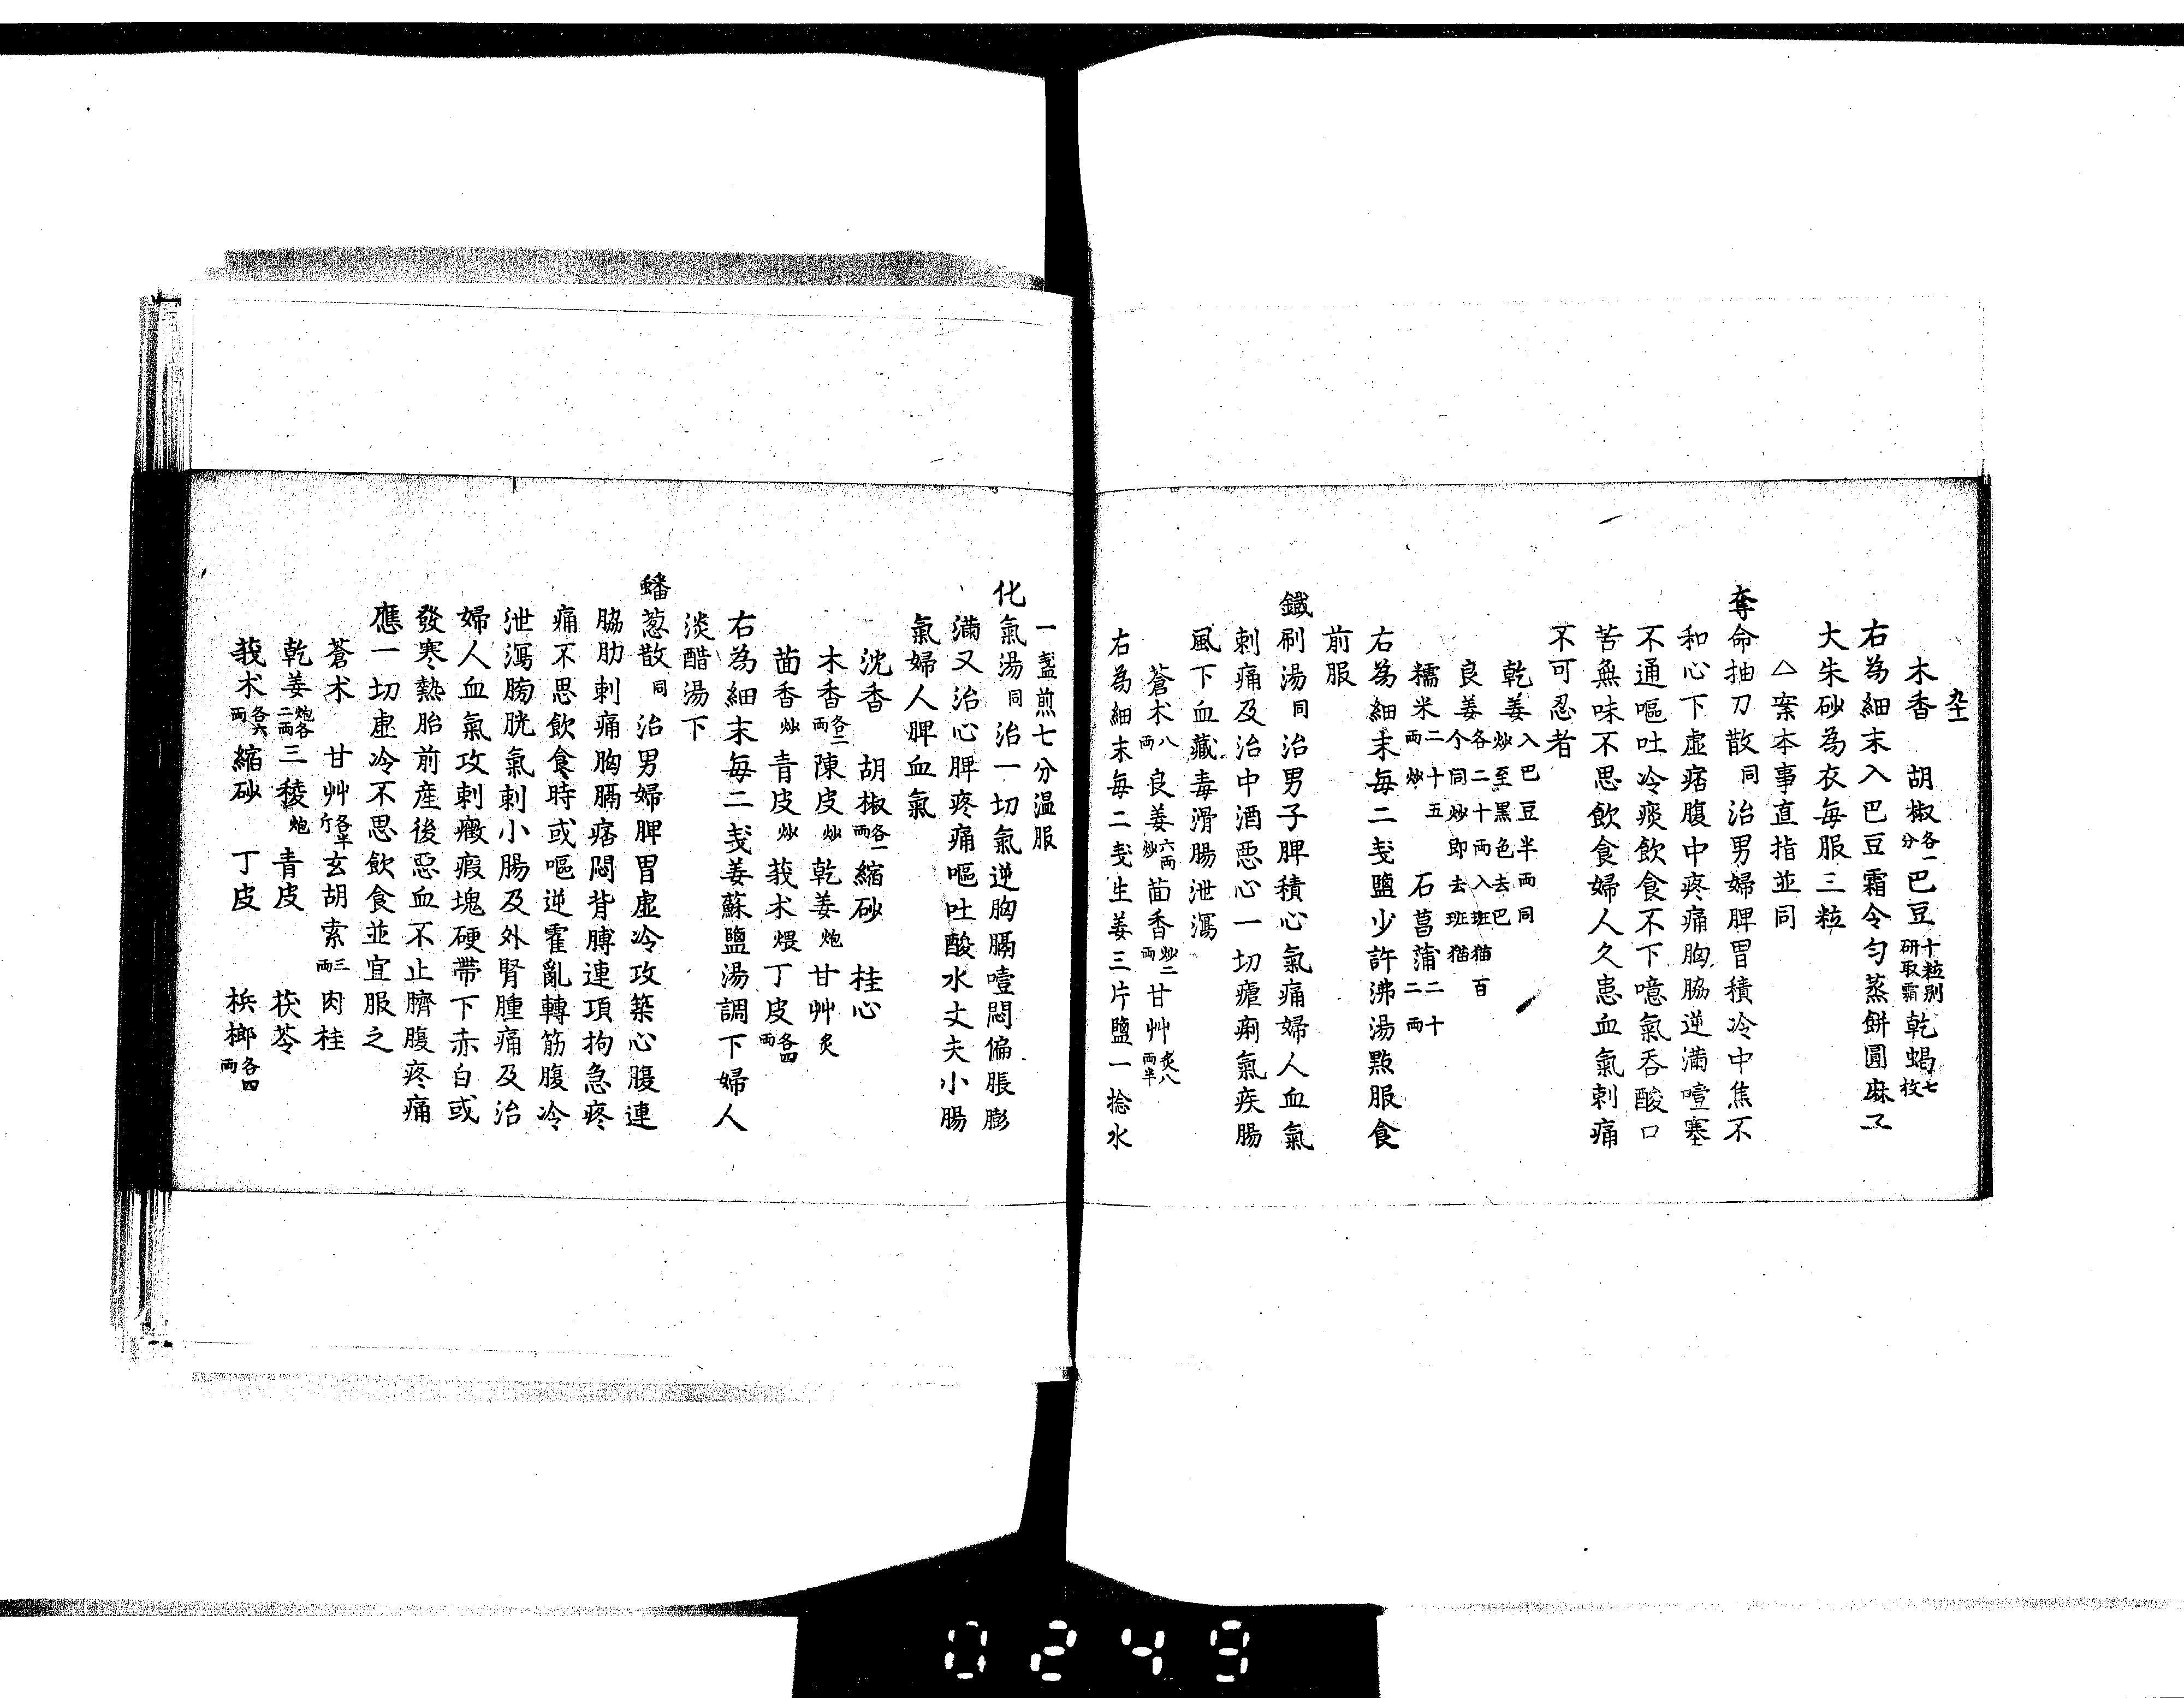 九十一
木香　胡椒各一分巴豆十粒別研取霜乾蝎七枚
右為細末入巴豆霜令匀蒸餅圓麻子
大朱砂為衣毎服三粒
△案本事直指並同
奪命抽刀散同治男婦脾胃積冷中焦不
和心下虛痞腹中疼痛胸脇逆滿噎塞
不通嘔吐冷痰飲食不下噫氣吞酸口
苦無味不思飲食婦人久患血氣刺痛
不可忍者
乾姜入巴豆半両同炒至黒色去巴
良姜各二十両入班猫百个同炒即去班猫
糯米二十五両炒　石菖蒲二十二両
右為細末毎二戔鹽少許沸湯點服食
前服
鐵刷湯同治男子脾積心氣痛婦人血氣
刺痛及治中酒悪心一切瘧痢氣疾腸
風下血藏毒滑腸泄瀉
蒼朮八両良姜六両炒茴香炒二両甘艸炙八両半
右為細末毎二戔生姜三片鹽一捻水
一盞煎七分温服
化氣湯同治一切氣逆胸膈噎悶偏脹膨
滿又治心脾疼痛嘔吐酸水丈夫小腸
氣婦人脾血氣
沈香　胡椒各一両縮砂　桂心
木香各二両陳皮炒乾姜炮甘艸炙
茴香炒青皮炒莪朮煨丁皮各四両
右為細末毎二戔姜蘇鹽湯調下婦人
淡醋湯下
蟠葱散同治男婦脾胃虛冷攻築心腹連
脇肋刺痛胸膈痞悶背膊連項拘急疼
痛不思飲食時或嘔逆霍亂轉筋腹冷
泄瀉膀胱氣刺小腸及外腎腫痛及治
婦人血氣攻刺癥瘕塊硬帶下赤白或
發寒熱胎前産後惡血不止臍腹疼痛
應一切虛冷不思飲食並宜服之
蒼朮　甘艸各半斤玄胡索三両肉桂
乾姜炮各二両三稜炮青皮　茯苓
莪朮各六両縮砂　丁皮　梹榔各四両
0249